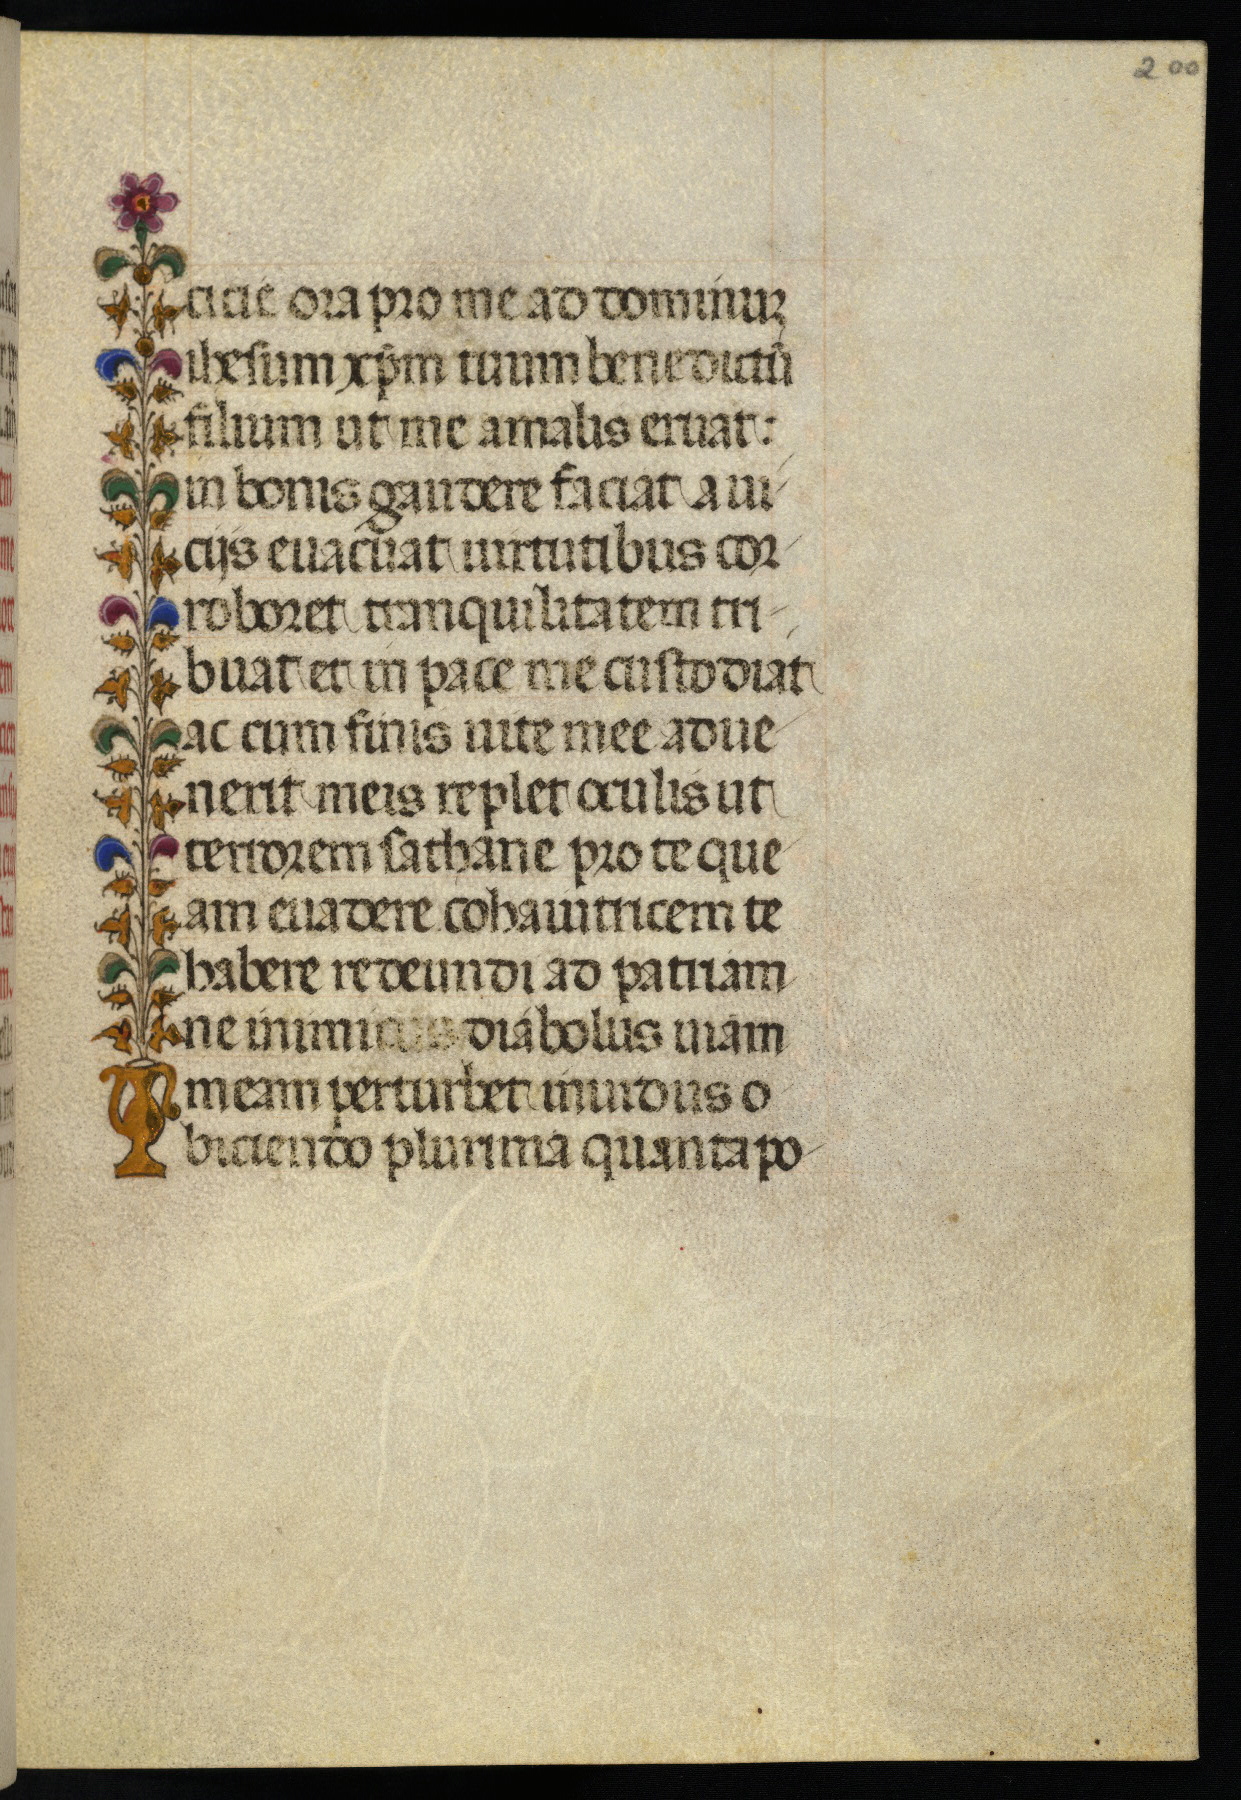 200
cicie ora pro me ad dominuz
ihesum xp̄m tuum benedictū
filium ut me amalis eruat:
in bonis gaudere faciat a ui
cijs euacuat uirtutibus cor
roboret tranquilitatem tri
buat et in pace me custodiat
ac cum finis uite mee adue
nerit meis replet oculis ut
terrorem sathane pro te que
am euadere cohauitricem te
habere redeundi ad patriam
ne inimicus diabolus uiam
meam perturbet inuidus o
biciendo plurima quanta po